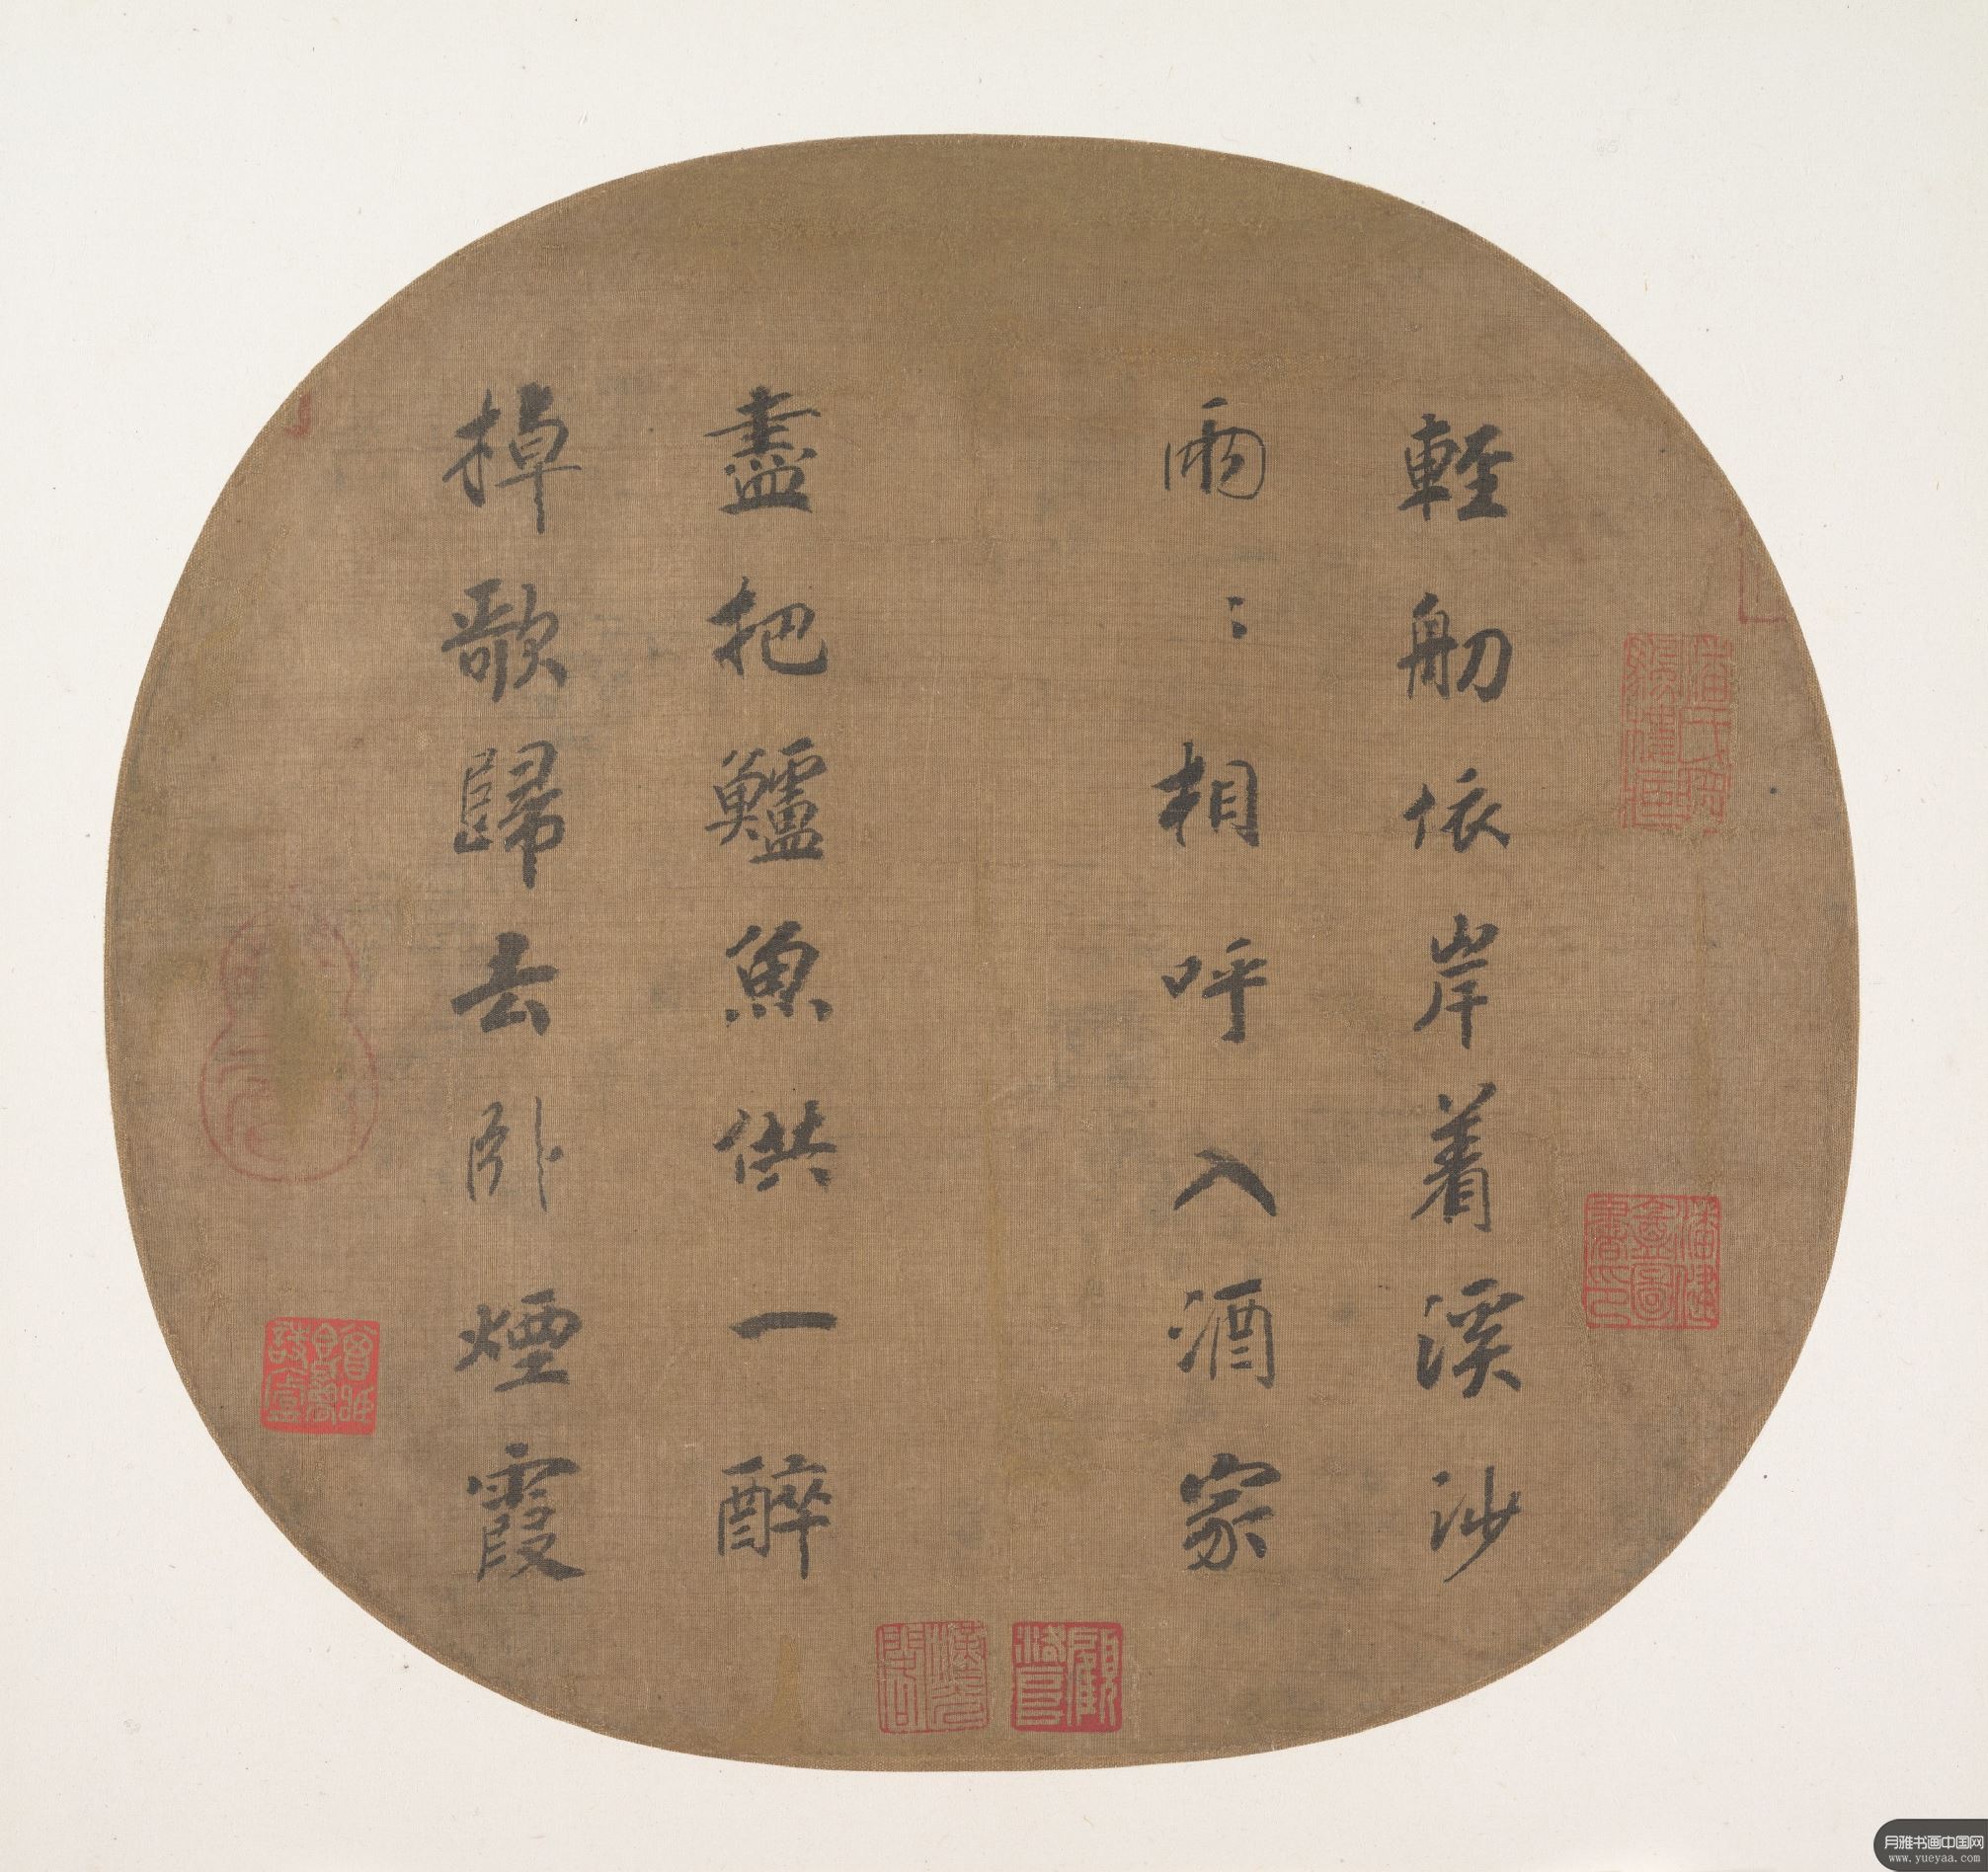 輕舠依岸着溪沙
兩〻相呼入酒家
盡把鱸魚供一醉
棹歌歸去卧煙霞
月雅书画中国网
www.yueyaa.com